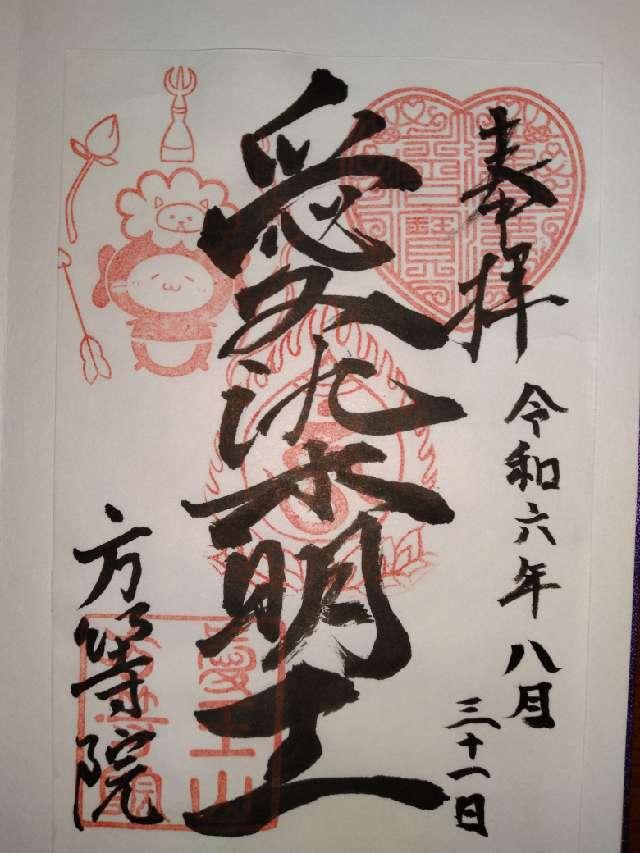 奉拝
令和六年八月
三十一日
愛染明王
方等院